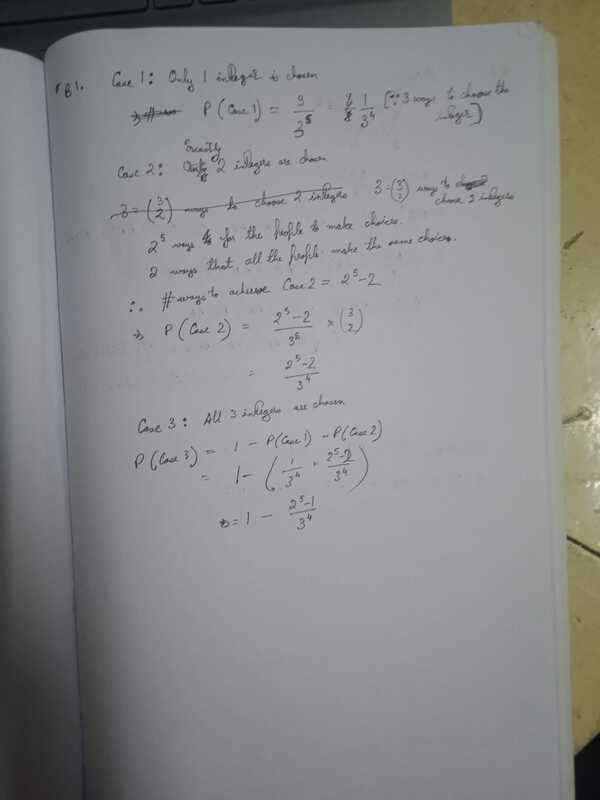 B1. Case 1: Only 1 integer is chosen
P (Case 1) = 3/3^5 = 1/3^4 [∵ 3 ways to choose the integer]
Case 2: Exactly 2 integers are chosen
3 = (3 2) ways to choose 2 integers 3 = (3 2) ways to choose 2 integers
2^5 ways for the people to make choices.
2 ways that all the people make the same choices.
∴ # ways to achieve Case 2 = 2^5 - 2
⇒ P (Case 2) = (2^5 - 2)/3^5 × (3 2)
= (2^5 - 2)/3^4
Case 3: All 3 integers are chosen
P (Case 3) = 1 - P(Case 1) - P(Case 2)
= 1 - (1/3^4 + (2^5 - 2)/3^4)
= 1 - (2^5 - 1)/3^4